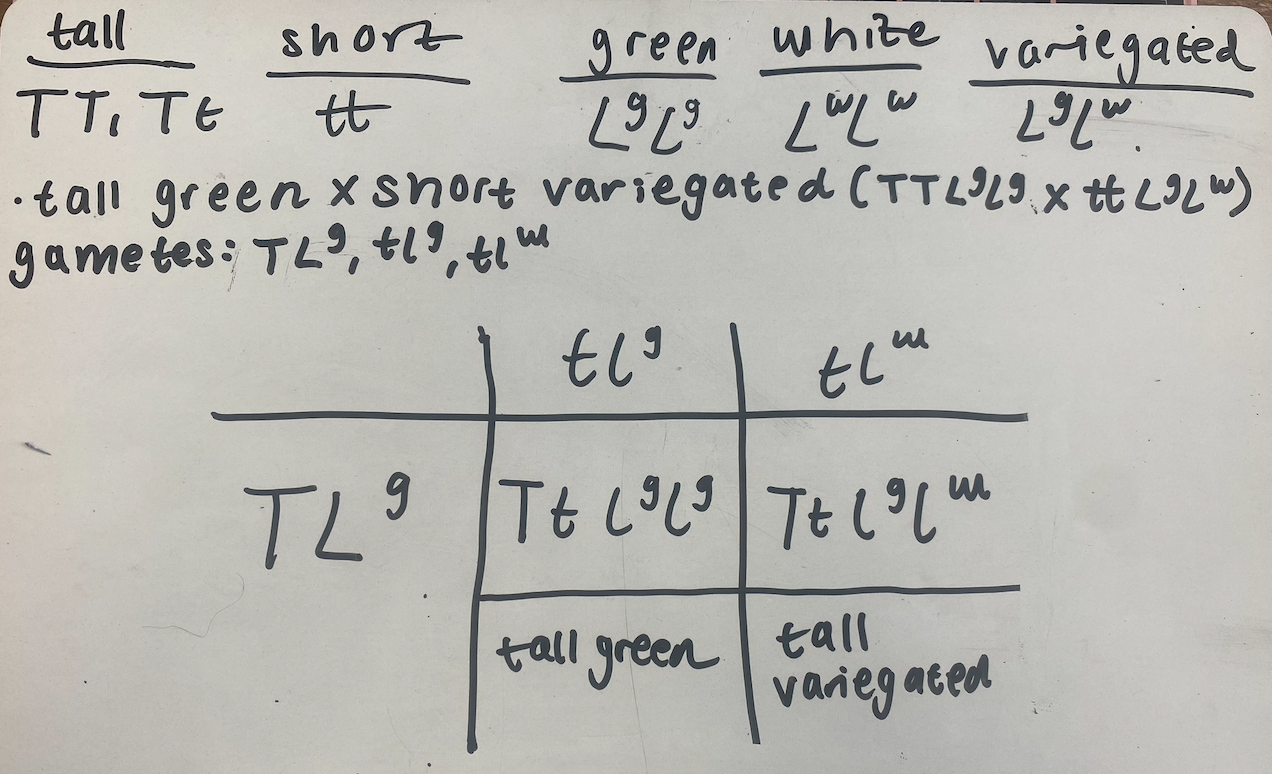 tall short green white variegated
TT, Tt tt LᵍLᵍ LʷLʷ LᵍLʷ
·tall green x short variegated (TTLᵍLᵍ x ttLᵍLʷ)
gametes: TLᵍ, tLᵍ, tLʷ
tLᵍ tLʷ
TLᵍ Tt LᵍLᵍ Tt LᵍLʷ
tall green tall
variegated